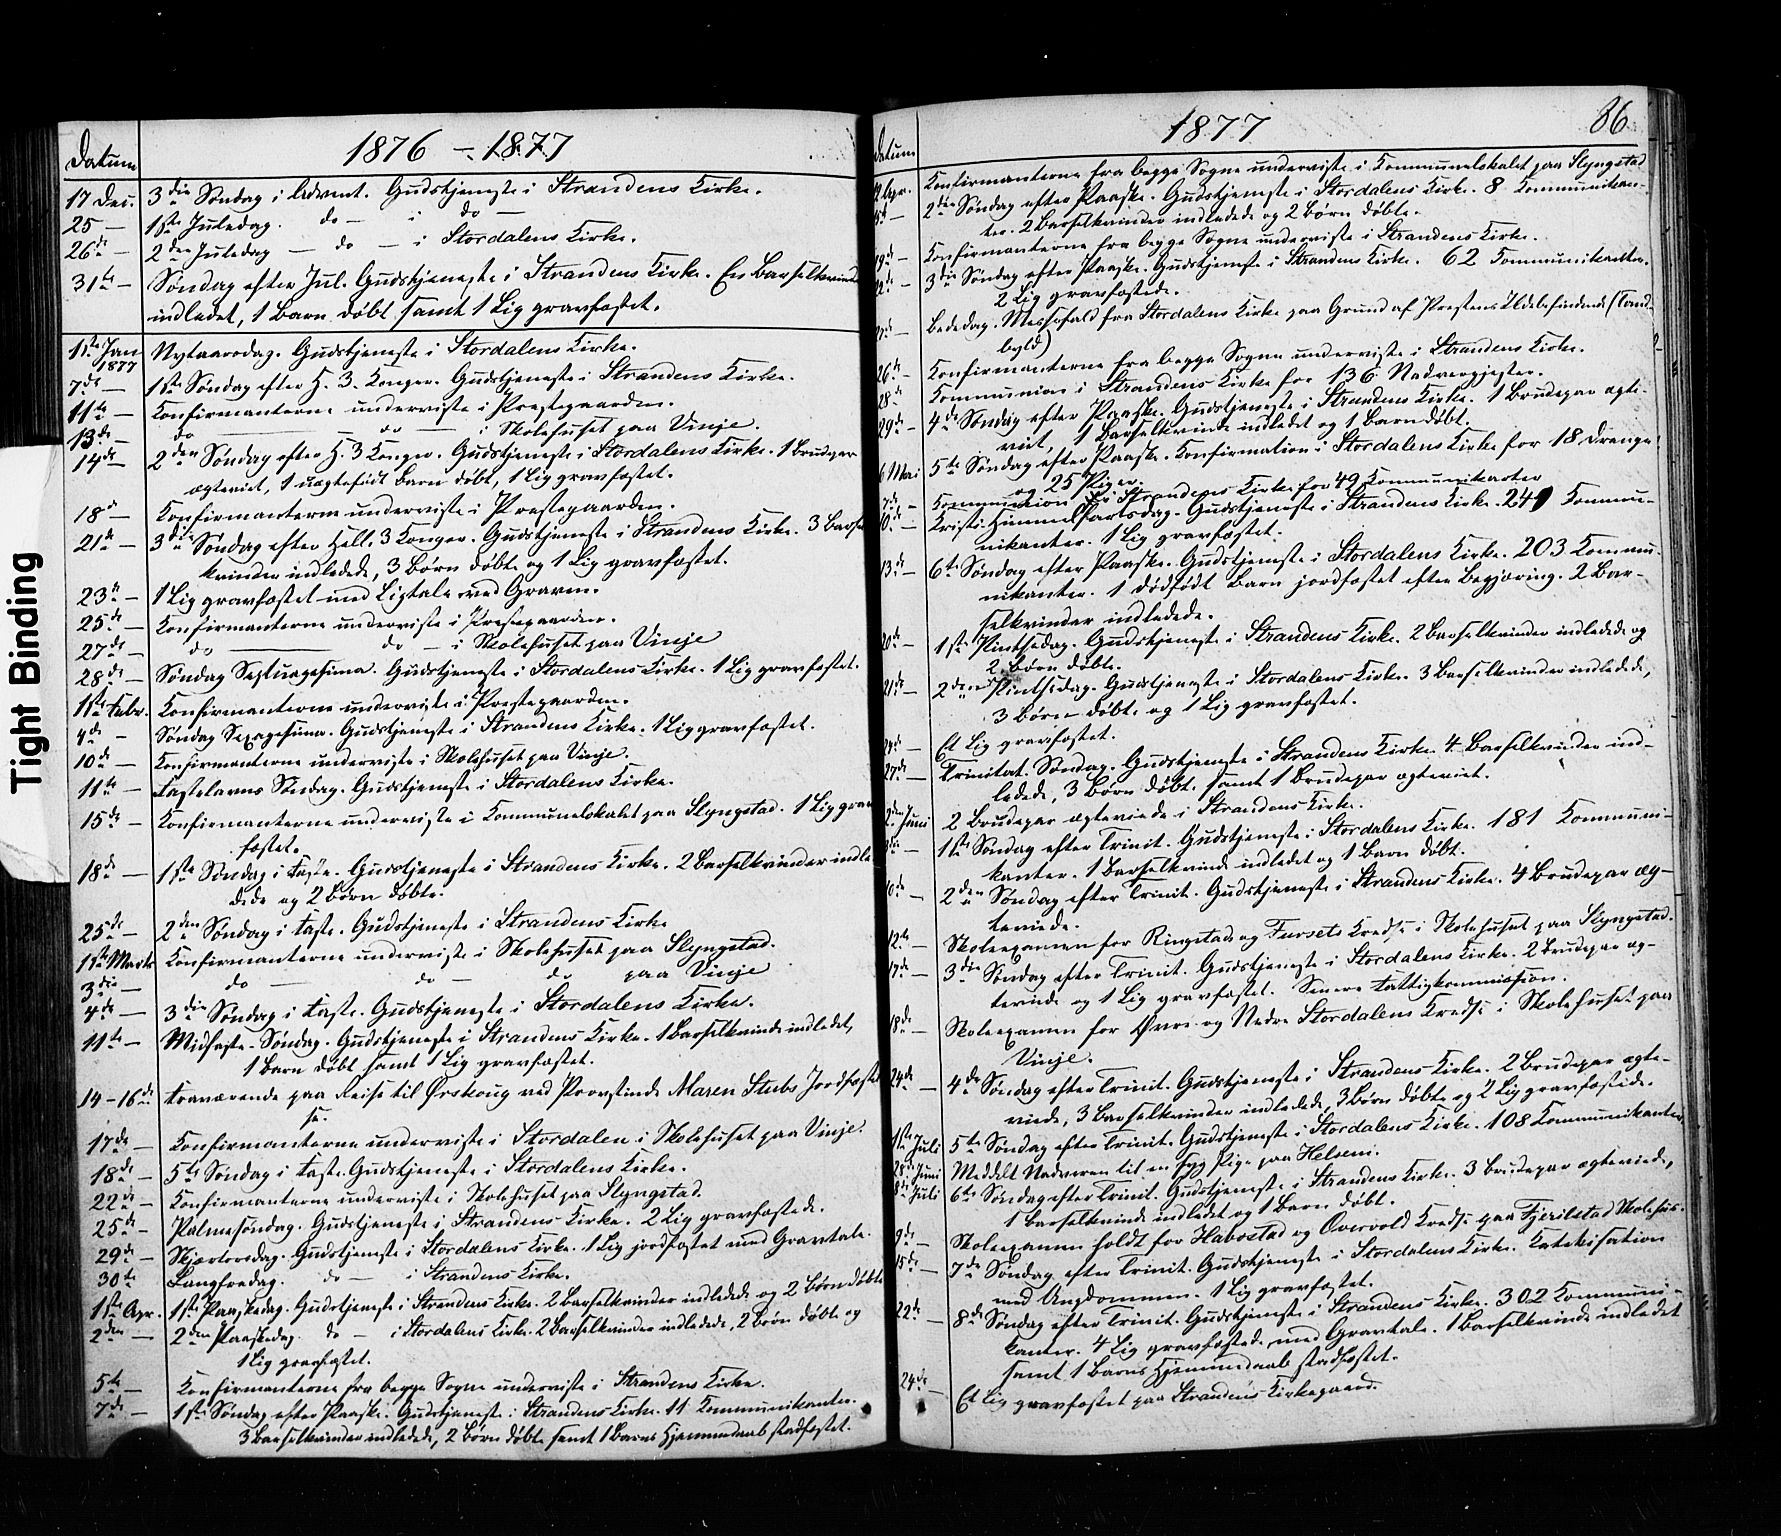 Tight Binding
Datum
1876 – 1877
17 Dec. 3die Søndag i Advent. Gudstjeneste i Strandens Kirke.
25 – 1ste Juledag. do – i do –
26de – 2den Juledag – do – i Stordalens Kirke.
31te – Søndag efter Jul. Gudstjeneste i Strandens Kirke. En Barselkvinde
indledet, 1 Barn døbt samt 1 Lig gravfæstet.
1ste Jan 1877 Nytaarsdag. Gudstjeneste i Stordalens Kirke.
7de – 1ste Søndag efter H. 3. Konger. Gudstjeneste i Strandens Kirke.
11te – Konfirmanterne underviste i Prestegaarden.
13de – do – do – i Skolehuset paa Vinje.
14de – 2den Søndag efter H. 3 Konger. Gudstjeneste i Stordalens Kirke. 1 Brudepar
ægteviet, 1 uægtefødt Barn døbt, 1 Lig gravfæstet.
18de – Konfirmanterne underviste i Prestegaarden.
21de – 3die Søndag efter Hell. 3 Konger. Gudstjeneste i Strandens Kirke. 3 Barsel
kvinder indledede, 3 Børn døbte og 1 Lig gravfæstet.
23de – 1 Lig gravfæstet med Ligtale ved Graven.
25de – Konfirmanterne underviste i Prestegaarden.
27de – do – do – i Skolehuset paa Vinje
28de – Søndag Septuagesima. Gudstjeneste i Stordalens Kirke. 1 Lig gravfæstet.
1ste Febr. Konfirmanterne underviste i Prestegaarden.
4de – Søndag Sexagesima. Gudstjeneste i Strandens Kirke. 1 Lig gravfæstet.
10de – Konfirmanterne underviste i Skolehuset paa Vinje.
11te – Fastelavns Søndag. Gudstjeneste i Stordalens Kirke.
15de – Konfirmanterne underviste i Kommunelokalet paa Slyngstad. 1 Lig grav
fæstet.
18de – 1ste Søndag i Faste. Gudstjeneste i Strandens Kirke. 2 Barselkvinder indle
dede og 2 Børn døbte.
25de – 2den Søndag i Faste. Gudstjeneste i Strandens Kirke
1ste Marts Konfirmanterne underviste i Skolehuset paa Slyngstad.
3die – do – do – do paa Vinje
4de – 3die Søndag i Faste. Gudstjeneste i Stordalens Kirke.
11te – Midfaste-Søndag. Gudstjeneste i Strandens Kirke. 1 Barselkvinde indledet,
1 Barn døbt samt 1 Lig gravfæstet.
14–16de Fraværende paa Reise til Ørskoug ved Provstinde Maren Stubs Jordfæstel
se.
17de – Konfirmanterne underviste i Stordalen i Skolehuset paa Vinje.
18de – 5te Søndag i Faste. Gudstjeneste i Stordalens Kirke.
22de – Konfirmanterne underviste i Skolehuset paa Slyngstad.
25de – Palmesøndag. Gudstjeneste i Strandens Kirke. 2 Lig gravfæstede.
29de – Skjærtorsdag. Gudstjeneste i Stordalens Kirke. 1 Lig jordfæstet med Gravtale.
30te – Langfredag. do – i Strandens Kirke.
1ste Apr. 1ste Paaskedag. Gudstjeneste i Strandens Kirke. 2 Barselkvinder indledede og 2 Børn døbte
2den – 2den Paaskedag. do – i Stordalens Kirke. 2 Barselkvinder indledede, 2 Børn døbte og
1 Lig gravfæstet.
5te – Konfirmanterne fra begge Sogne underviste i Strandens Kirke.
7de – 1ste Søndag efter Paaske. Gudstjeneste i Strandens Kirke. 11 Kommunikanter.
3 Barselkvinder indledede, 2 Børn døbte samt 1 Barns Hjemmedaab stadfæstet.
Datum
1877
86
12 Apr. Konfirmanterne fra begge Sogne underviste i Kommunelokalet paa Slyngstad
15de – 2den Søndag efter Paaske. Gudstjeneste i Stordalens Kirke. 8 Kommunikan-
ter. 2 Barselkvinder indledede og 2 Børn døbte.
19de – Konfirmanterne fra begge Sogne underviste i Strandens Kirke.
22de – 3die Søndag efter Paaske. Gudstjeneste i Strandens Kirke. 62 Kommunikanter.
2 Lig gravfæstede.
Bededag. Messefald fra Stordalens Kirke paa Grund af Prestens Ildebefindende (Tand-
byld)
26de – Konfirmanterne fra begge Sogne underviste i Strandens Kirke.
28de Kommunion i Strandens Kirke for 136 Nadvergjester.
29de – 4de Søndag efter Paaske. Gudstjeneste i Strandens Kirke. 1 Brudepar ægte-
viet, 1 Barselkvinde indledet og 1 Barn døbt.
6 Mai 5te Søndag efter Paaske. Konfirmation i Stordalens Kirke for 18 Drenge
og 25 Piger.
7de – Kommunion i Strandens Kirke for 49 Kommunikanter
10de – Kristi Himmelfartsdag. Gudstjeneste i Strandens Kirke. 241 Kommu-
nikanter. 1 Lig gravfæstet.
13de – 6te Søndag efter Paaske. Gudstjeneste i Stordalens Kirke. 203 Kommu-
nikanter. 1 dødfødt Barn jordfæstet efter Begjæring. 2 Bar-
selkvinder indledede.
20de – 1ste Pintsedag. Gudstjeneste i Strandens Kirke. 2 Barselkvinder indledede og
2 Børn døbte.
21de – 2den Pintsedag. Gudstjeneste i Stordalens Kirke. 3 Barselkvinder indledede,
3 Børn døbte og 1 Lig gravfæstet.
Et Lig gravfæstet.
27de – Trinitat. Søndag. Gudstjeneste i Strandens Kirke. 4 Barselkvinder ind-
ledede, 3 Børn døbte samt 1 Brudepar ægteviet.
2den Juni 2 Brudepar ægteviede i Strandens Kirke.
3die – 1ste Søndag efter Trinit. Gudstjeneste i Stordalens Kirke. 181 Kommuni-
kanter. 1 Barselkvinde indledet og 1 Barn døbt.
10de – 2den Søndag efter Trinit. Gudstjeneste i Strandens Kirke. 4 Brudepar æg-
teviede.
12te – Skoleexamen for Ringstad og Fursets Kredse i Skolehuset paa Slyngstad.
17de – 3die Søndag efter Trinit. Gudstjeneste i Stordalens Kirke. 2 Brudepar æg-
teviede og 1 Lig gravfæstet. Senere Fattigkommission.
18de – Skoleexamen for Øvre og Nedre Stordalens Kredse i Skolehuset paa
Vinje.
24de – 4de Søndag efter Trinit. Gudstjeneste i Strandens Kirke. 2 Brudepar ægte-
viede, 3 Barselkvinder indledede, 3 Børn døbte og 2 Lig gravfæstede.
1ste Juli 5te Søndag efter Trinit. Gudstjeneste i Stordalens Kirke. 108 Kommunikanter
28de Juni Meddelt Nadveren til en syg Pige paa Helsem.
8de Juli 6te Søndag efter Trinit. Gudstjeneste i Strandens Kirke. 3 Brudepar ægteviede,
1 Barselkvinde indledet og 1 Barn døbt.
9de – Skoleexamen holdt for Habostad og Overvold Kredse paa Fjerilstad Skolehus.
15de – 7de Søndag efter Trinit. Gudstjeneste i Stordalens Kirke. Katekisation
med Ungdommen. 1 Lig gravfæstet.
22de – 8de Søndag efter Trinit. Gudstjeneste i Strandens Kirke. 302 Kommuni-
kanter. 4 Lig gravfæstede med Gravtale. 1 Barselkvinde indledet
samt 1 Barns Hjemmedaab stadfæstet.
24de – Et Lig gravfæstet paa Strandens Kirkegaard.